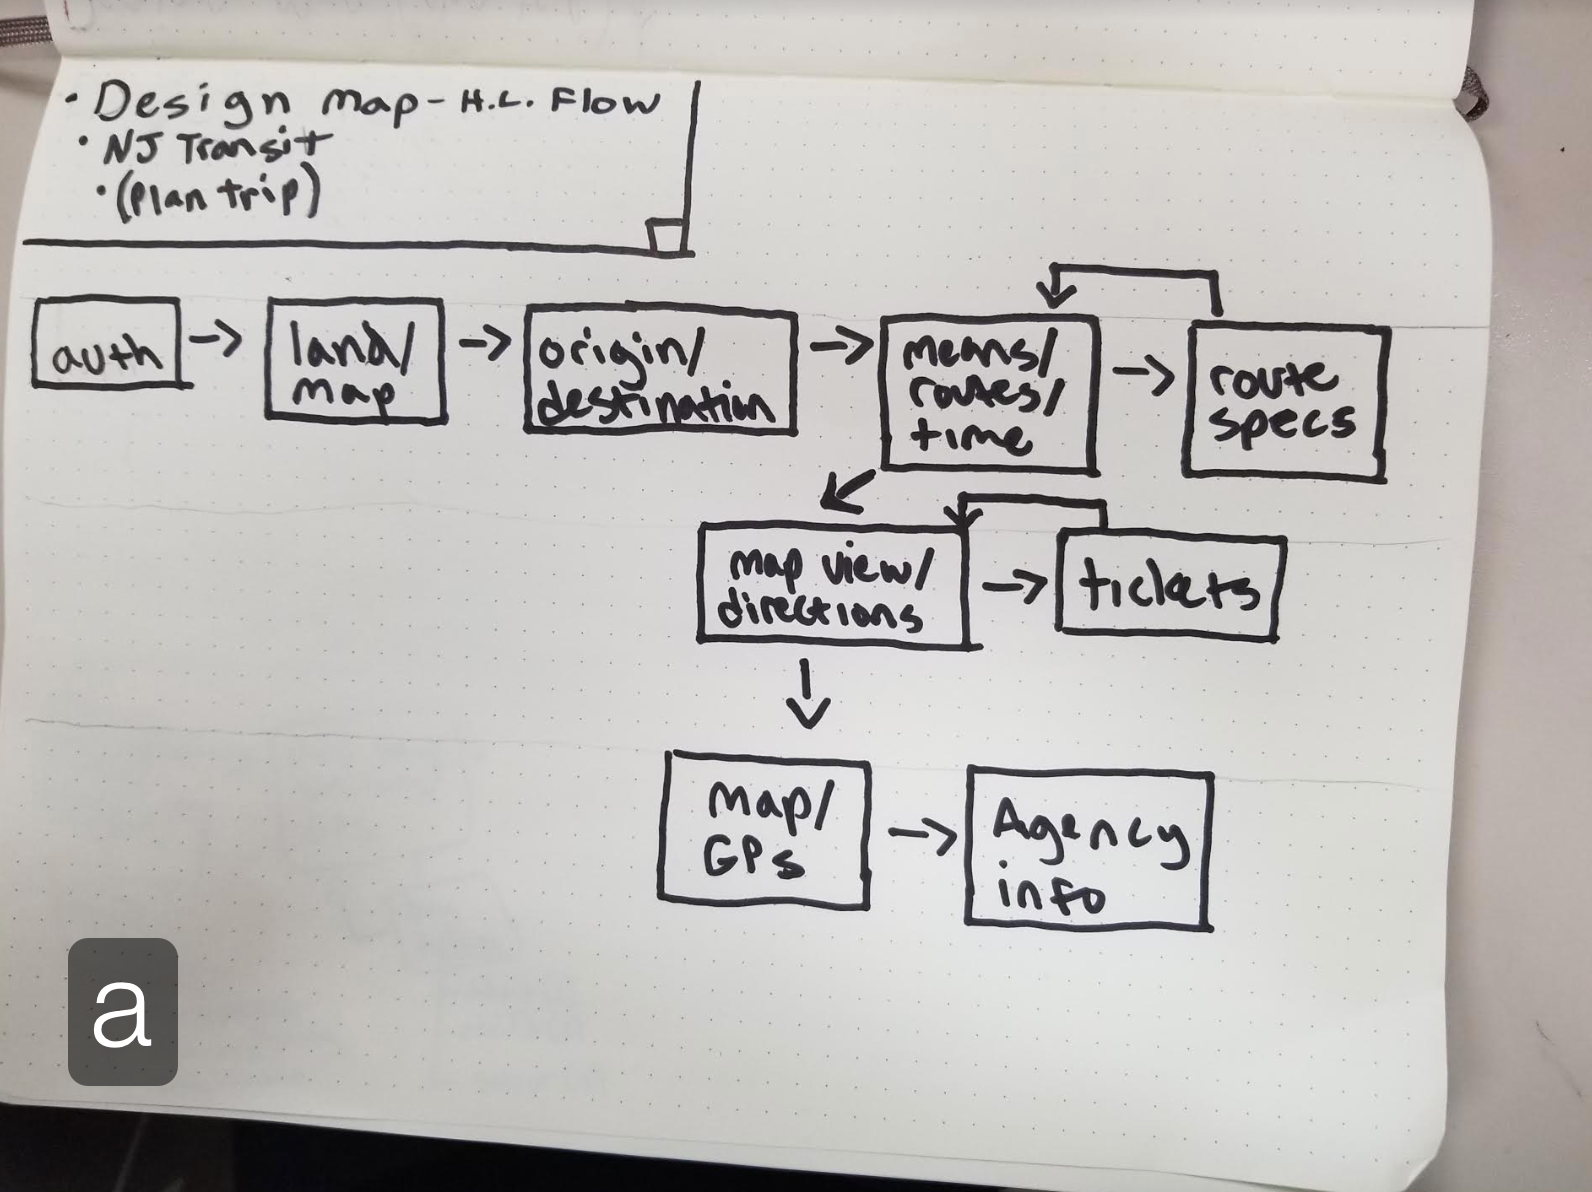 • Design map - H.L. Flow
• NJ Transit
• (Plan trip)
auth
land/
map
origin/
destination
means/
routes/
time
route
specs
map view/
directions
tickets
map/
GPS
Agency
info
a